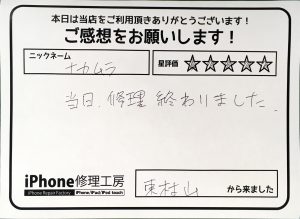 本日は当店をご利用頂きありがとうございます!
ご感想をお願いします!
ニックネーム
ナカムラ
星評価 ☆☆☆☆☆
当日、修理 終わりました。
iPhone修理工房
iPhone Repair Factory iPhone/iPad/iPod touch
東村山 から来ました